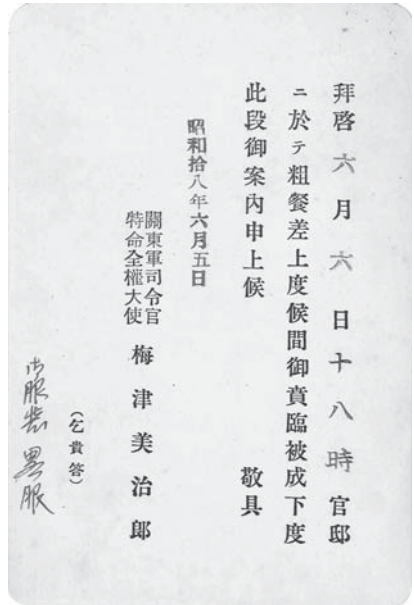 拝啓六月六日十八時官邸
ニ於テ粗餐差上度候間御賁臨被成下度
此段御案內申上候　敬具
昭和拾八年六月五日
關東軍司令官
特命全權大使
梅津美治郎
(乞貴答)
御服装 黒服